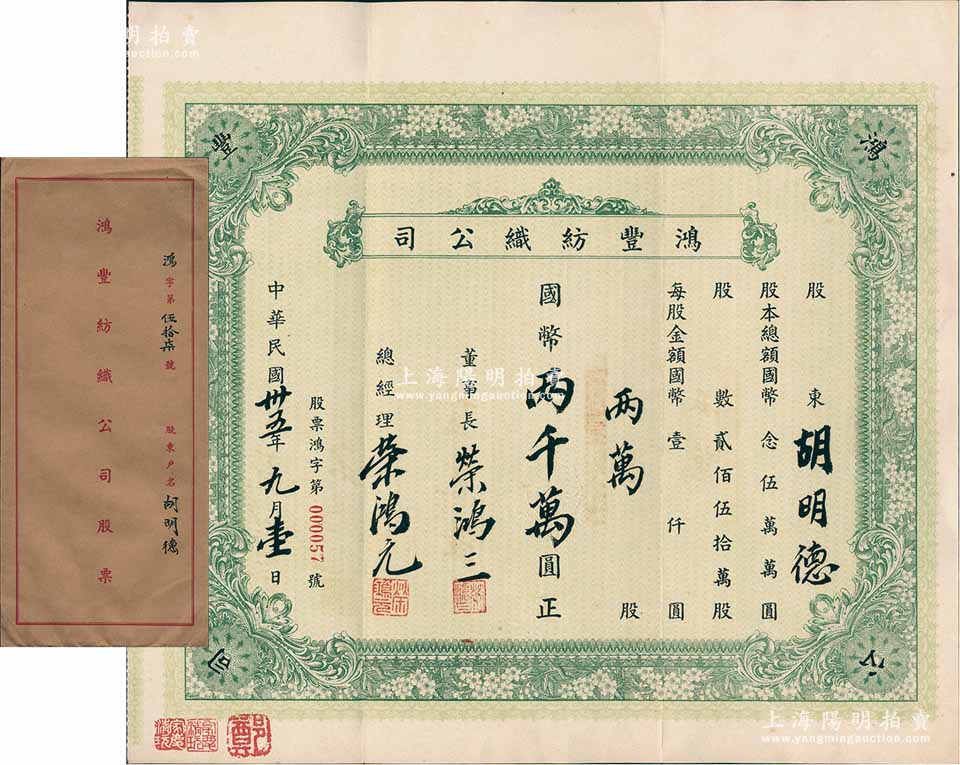 鴻豐公司
鴻豐紡織公司
股東 胡明德
股本總額國幣念伍萬萬圓
股數貳佰伍拾萬股
每股金額國幣壹仟圓
兩萬股
國幣兩千萬圓正
董事長 榮鴻三
總經理 榮鴻元
股票鴻字第000057號
中華民國卅五年九月壹日
鴻字第伍拾柒號 股東戶名 胡明德
鴻豐紡織公司股票
上海陽明拍賣
www.yangmingauction.com
上海陽明拍賣
www.yangmingauction.com
上海陽明拍賣
www.yangmingauction.com